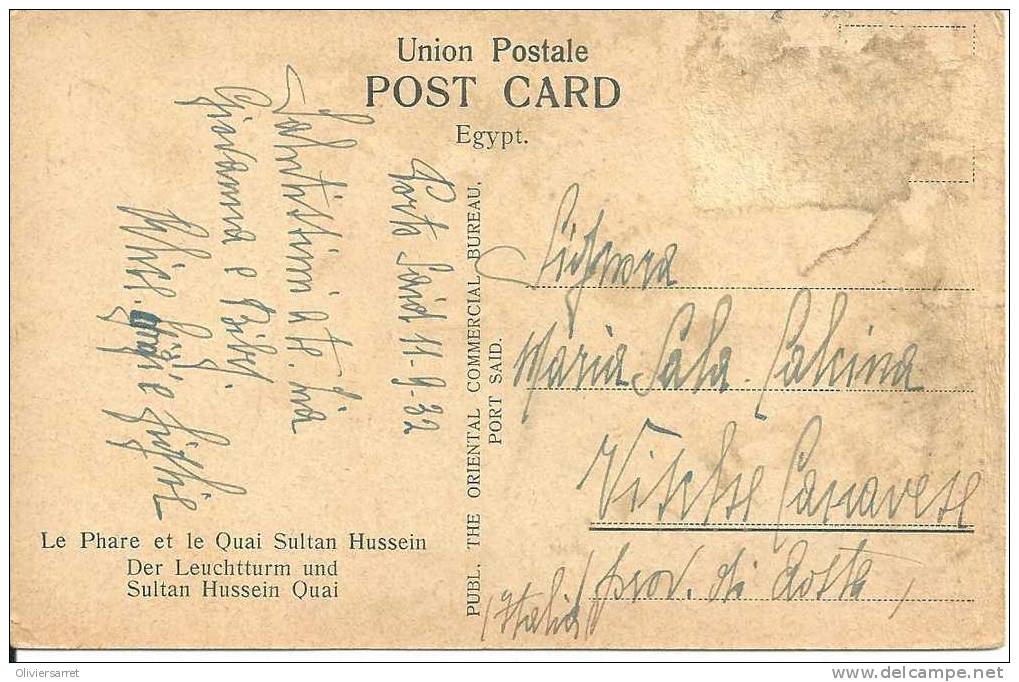 Union Postale
POST CARD
Egypt.
Porto Said 11-9-32
Salutissimi a te. Zia
Giovanna e Bibi.
figlie
PUBL. THE ORIENTAL COMMERCIAL BUREAU,
PORT SAID.
Signora
Maria Sala. Salvina
Vische Canavese
(prov. di Aosta)
(Italia)
Le Phare et le Quai Sultan Hussein
Der Leuchtturm und
Sultan Hussein Quai
Oliviersarret
http://www.delcampe.net